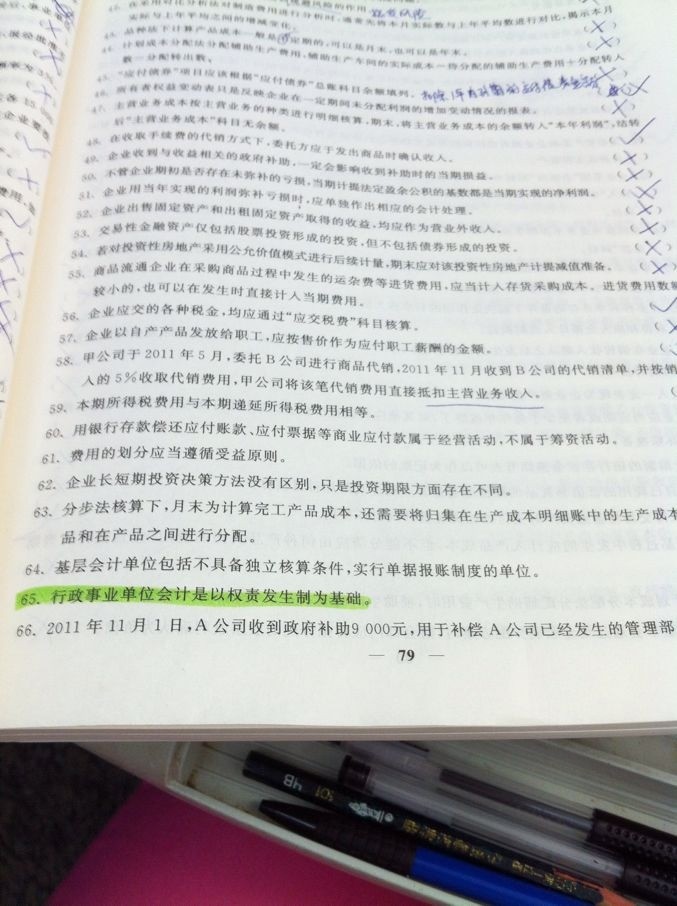 在采用对比分析法对制造费用进行分析时,通常先将本月实际数与上年平均数进行对比,揭示本月
实际与上年平均之间的增减变化。
品种法下计算产品成本一般是定期的,可以是月末,也可以是年末。
计划成本分配法分配辅助生产费用,辅助生产车间的实际成本-待分配的辅助生产费用+分配转入
数-分配转出数。
45. “应付债券”项目应该根据“应付债券”总账科目余额填列。
46. 所有者权益变动表只是反映企业在一定期间未分配利润的增加变动情况的报表。
47. 主营业务成本按主营业务的种类进行明细核算,期末,将主营业务成本的余额转入“本年利润”,结转
后“主营业务成本”科目无余额。
48. 在收取手续费的代销方式下,委托方应于发出商品时确认收入。
49. 企业收到与收益相关的政府补助,一定会影响收到补助时的当期损益。
50. 不管企业期初是否存在未弥补的亏损,当期计提法定盈余公积的基数都是当期实现的净利润。
51. 企业用当年实现的利润弥补亏损时,应单独作出相应的会计处理。
52. 企业出售固定资产和出租固定资产取得的收益,均应作为营业外收入。
53. 交易性金融资产仅包括股票投资形成的投资,但不包括债券形成的投资。
54. 若对投资性房地产采用公允价值模式进行后续计量,期末应对该投资性房地产计提减值准备。
55. 商品流通企业在采购商品过程中发生的运杂费等进货费用,应当计入存货采购成本。进货费用数额
较小的,也可以在发生时直接计入当期费用。
56. 企业应交的各种税金,均应通过“应交税费”科目核算。
57. 企业以自产产品发放给职工,应按售价作为应付职工薪酬的金额。
58. 甲公司于 2011 年 5 月,委托 B 公司进行商品代销,2011 年 11 月收到 B 公司的代销清单,并按销
人的 5%收取代销费用,甲公司将该笔代销费用直接抵扣主营业务收入。
59. 本期所得税费用与本期递延所得税费用相等。
60. 用银行存款偿还应付账款、应付票据等商业应付款属于经营活动,不属于筹资活动。
61. 费用的划分应当遵循受益原则。
62. 企业长短期投资决策方法没有区别,只是投资期限方面存在不同。
63. 分步法核算下,月末为计算完工产品成本,还需要将归集在生产成本明细账中的生产成本
品和在产品之间进行分配。
64. 基层会计单位包括不具备独立核算条件,实行单据报账制度的单位。
65. 行政事业单位会计是以权责发生制为基础。
66. 2011 年 11 月 1 日,A 公司收到政府补助9 000元,用于补偿 A 公司已经发生的管理部
— 79 —